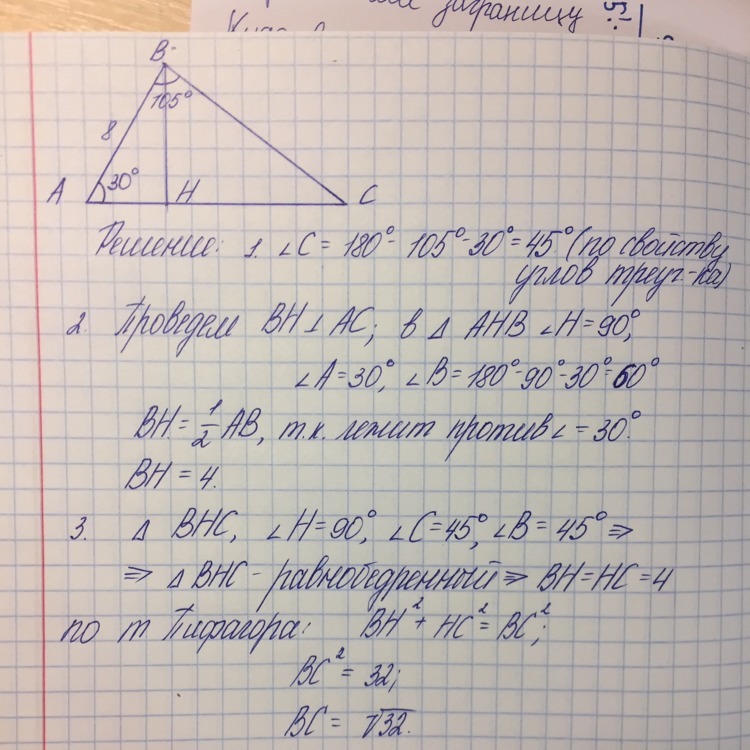 заграницу
B
105°
8
A 30° H C
Решение: 1. ∠C = 180° - 105° - 30° = 45° (по свойству
углов треуг-ка)
2. Проведем BH ⊥ AC; в Δ AHB ∠H = 90°,
∠A = 30°, ∠B = 180° - 90° - 30° = 60°
BH = 1/2 AB, т.к. лежит против ∠ = 30°.
BH = 4.
3. Δ BHC, ∠H = 90°, ∠C = 45°, ∠B = 45° ⇒
⇒ Δ BHC - равнобедренный ⇒ BH = HC = 4
по т Пифагора: BH² + HC² = BC²;
BC² = 32;
BC = √32.